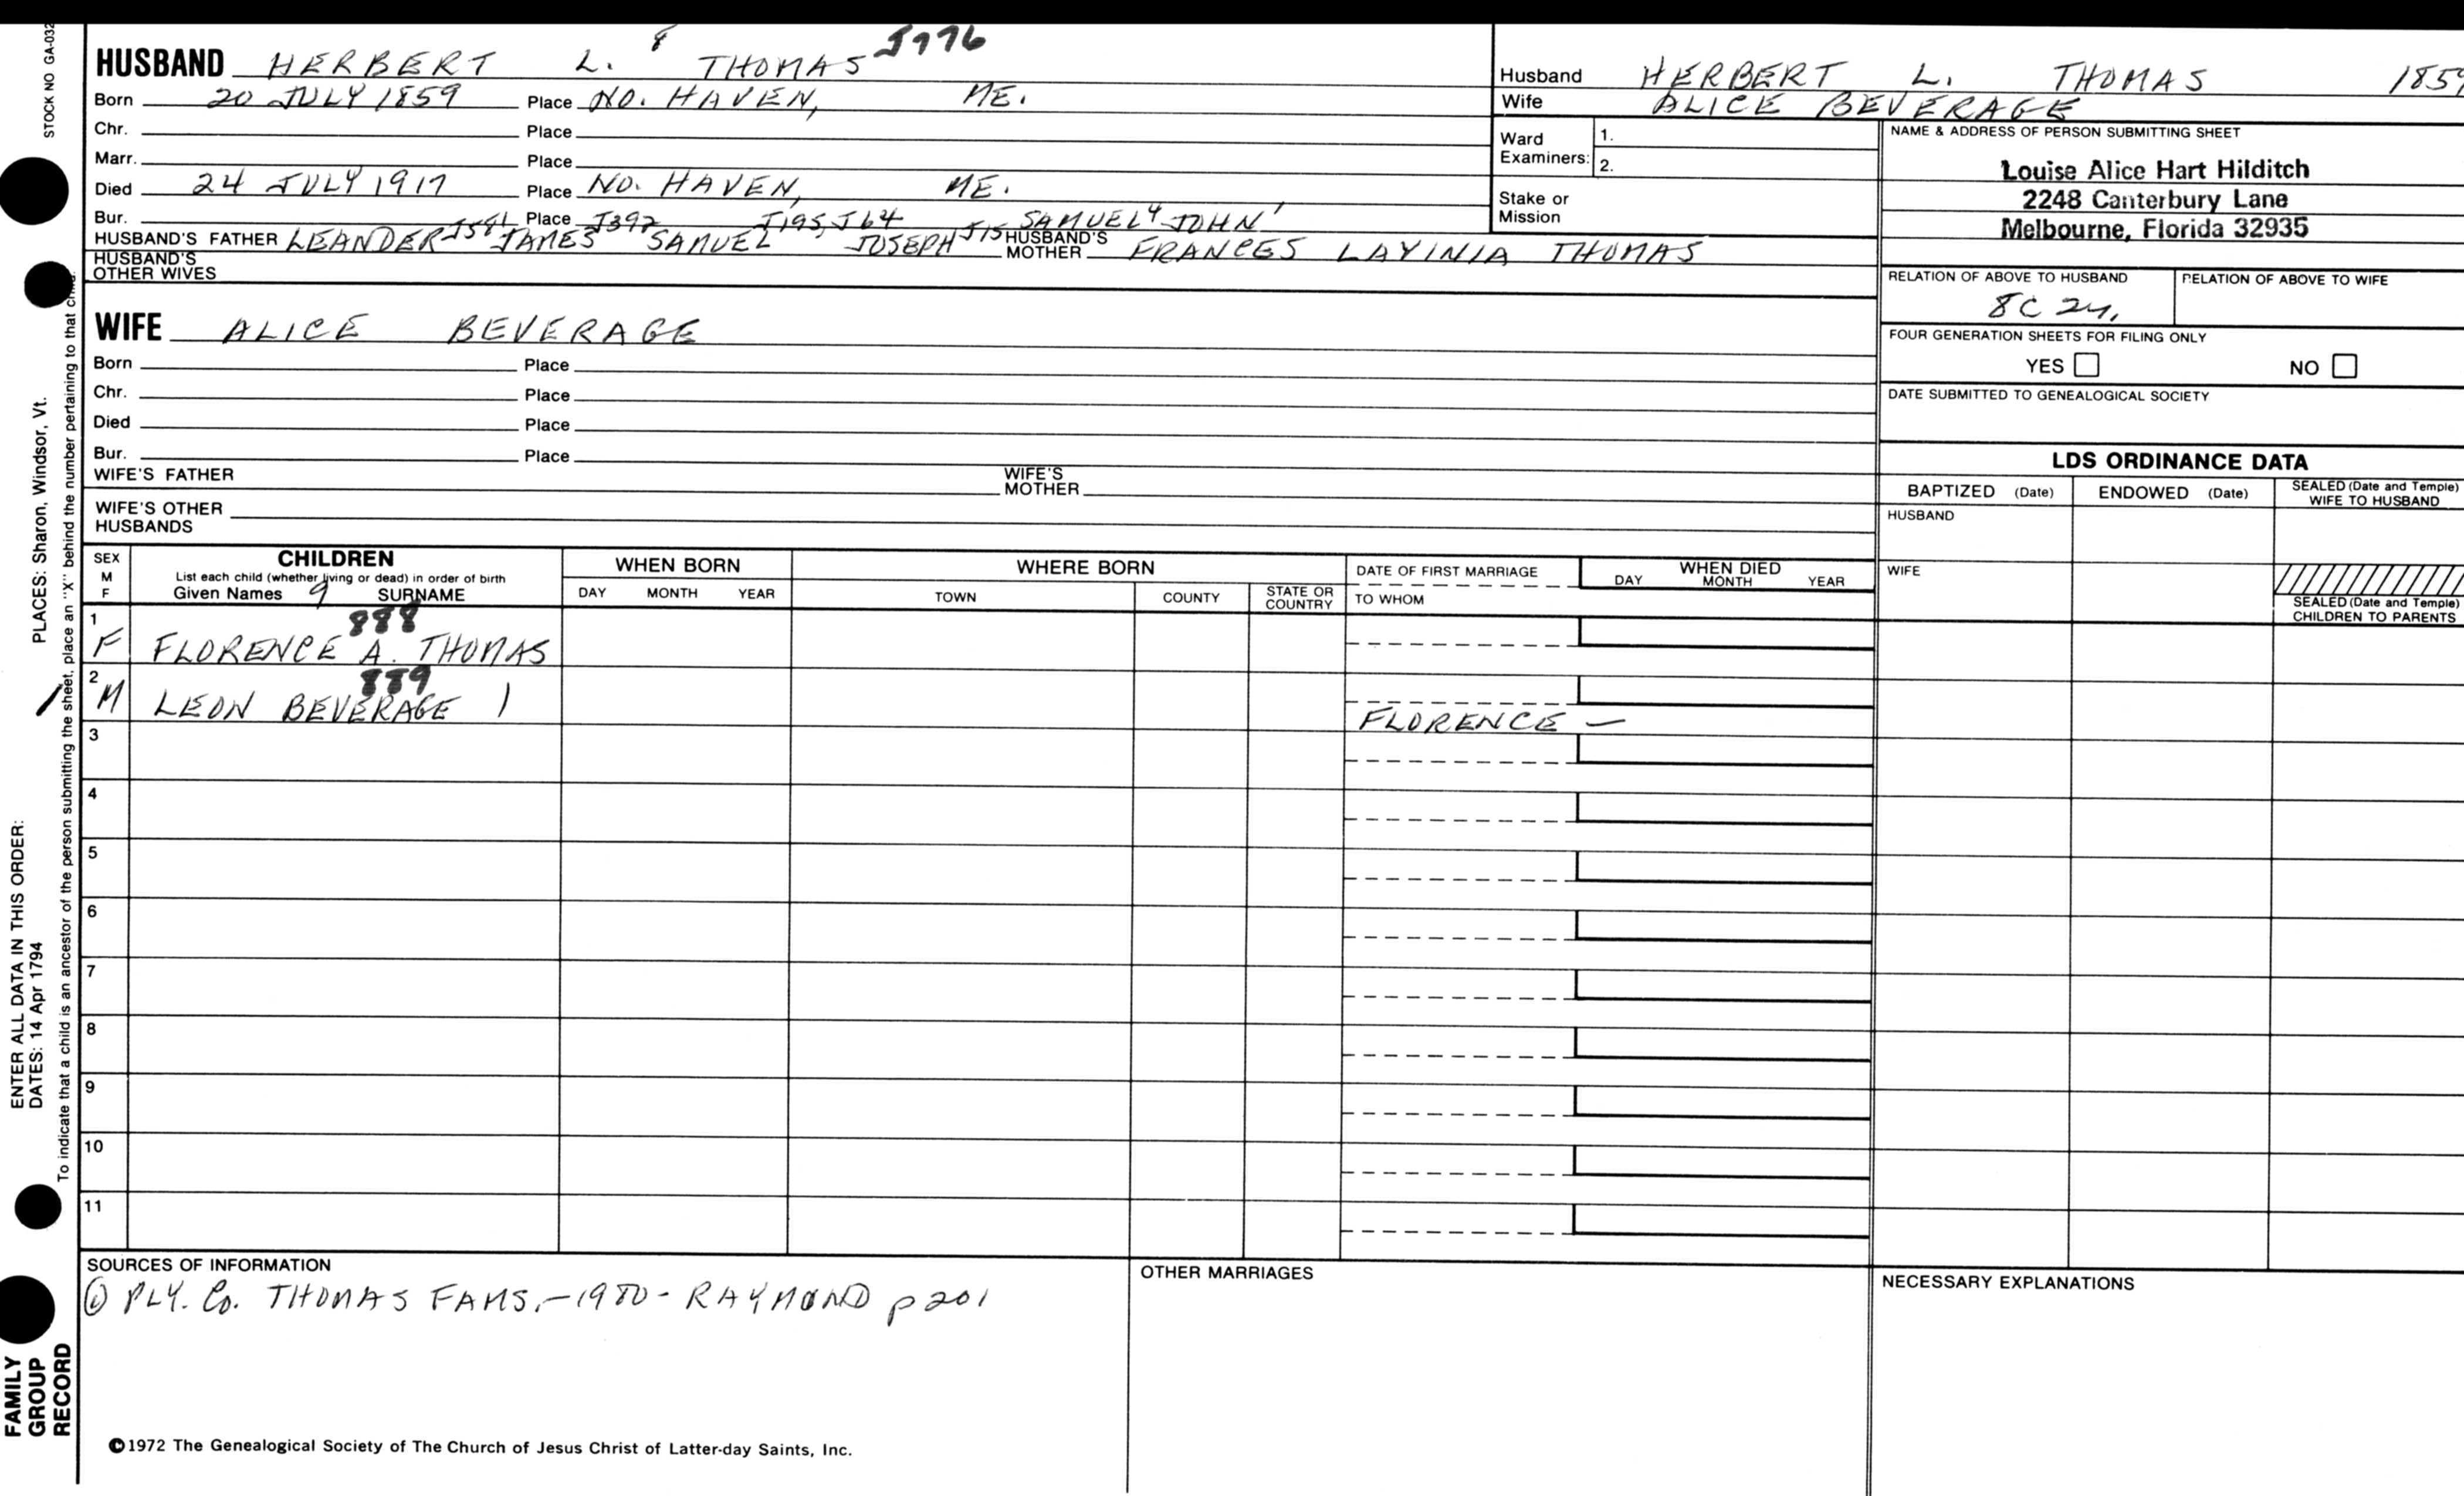 STOCK NO GA-032
HUSBAND HERBERT L. 8 THOMAS J776
Born 20 JULY 1859 Place NO. HAVEN, ME.
Chr. Place
Marr. Place
Died 24 JULY 1917 Place NO. HAVEN, ME.
Bur. Place J397 J195, J64 SAMUEL 4 JOHN 1
HUSBAND'S FATHER LEANDER J581 JAMES SAMUEL JOSEPH J15 HUSBAND'S MOTHER FRANCES LAVINIA THOMAS
HUSBAND'S OTHER WIVES
WIFE ALICE BEVERAGE
Born Place
Chr. Place
Died Place
Bur. Place
WIFE'S FATHER WIFE'S MOTHER
WIFE'S OTHER HUSBANDS
Husband HERBERT L. THOMAS 1859
Wife ALICE BEVERAGE
Ward Examiners: 1.
2.
Stake or Mission
NAME & ADDRESS OF PERSON SUBMITTING SHEET
Louise Alice Hart Hilditch
2248 Canterbury Lane
Melbourne, Florida 32935
RELATION OF ABOVE TO HUSBAND RELATION OF ABOVE TO WIFE
8C 2r,
FOUR GENERATION SHEETS FOR FILING ONLY
YES NO
DATE SUBMITTED TO GENEALOGICAL SOCIETY
LDS ORDINANCE DATA
BAPTIZED (Date) ENDOWED (Date) SEALED (Date and Temple) WIFE TO HUSBAND
HUSBAND
WIFE
SEALED (Date and Temple) CHILDREN TO PARENTS
SEX M F CHILDREN WHEN BORN WHERE BORN DATE OF FIRST MARRIAGE WHEN DIED
List each child (whether living or dead) in order of birth
Given Names 9 SURNAME DAY MONTH YEAR TOWN COUNTY STATE OR COUNTRY TO WHOM DAY MONTH YEAR
1 888
F FLORENCE A. THOMAS
2 889
M LEON BEVERAGE 1 FLORENCE —
3
4
5
6
7
8
9
10
11
SOURCES OF INFORMATION
① PLY. Co. THOMAS FAMS. - 1980 - RAYMOND p 201
OTHER MARRIAGES
NECESSARY EXPLANATIONS
©1972 The Genealogical Society of The Church of Jesus Christ of Latter-day Saints, Inc.
FAMILY GROUP RECORD
ENTER ALL DATA IN THIS ORDER:
DATES: 14 Apr 1794
PLACES: Sharon, Windsor, Vt.
To indicate that a child is an ancestor of the person submitting the sheet, place an "X" behind the number pertaining to that child.